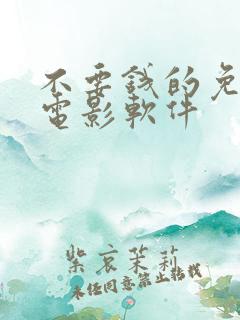 不要錢的免
電影軟件
紫哀茉莉
未经同意禁止转载